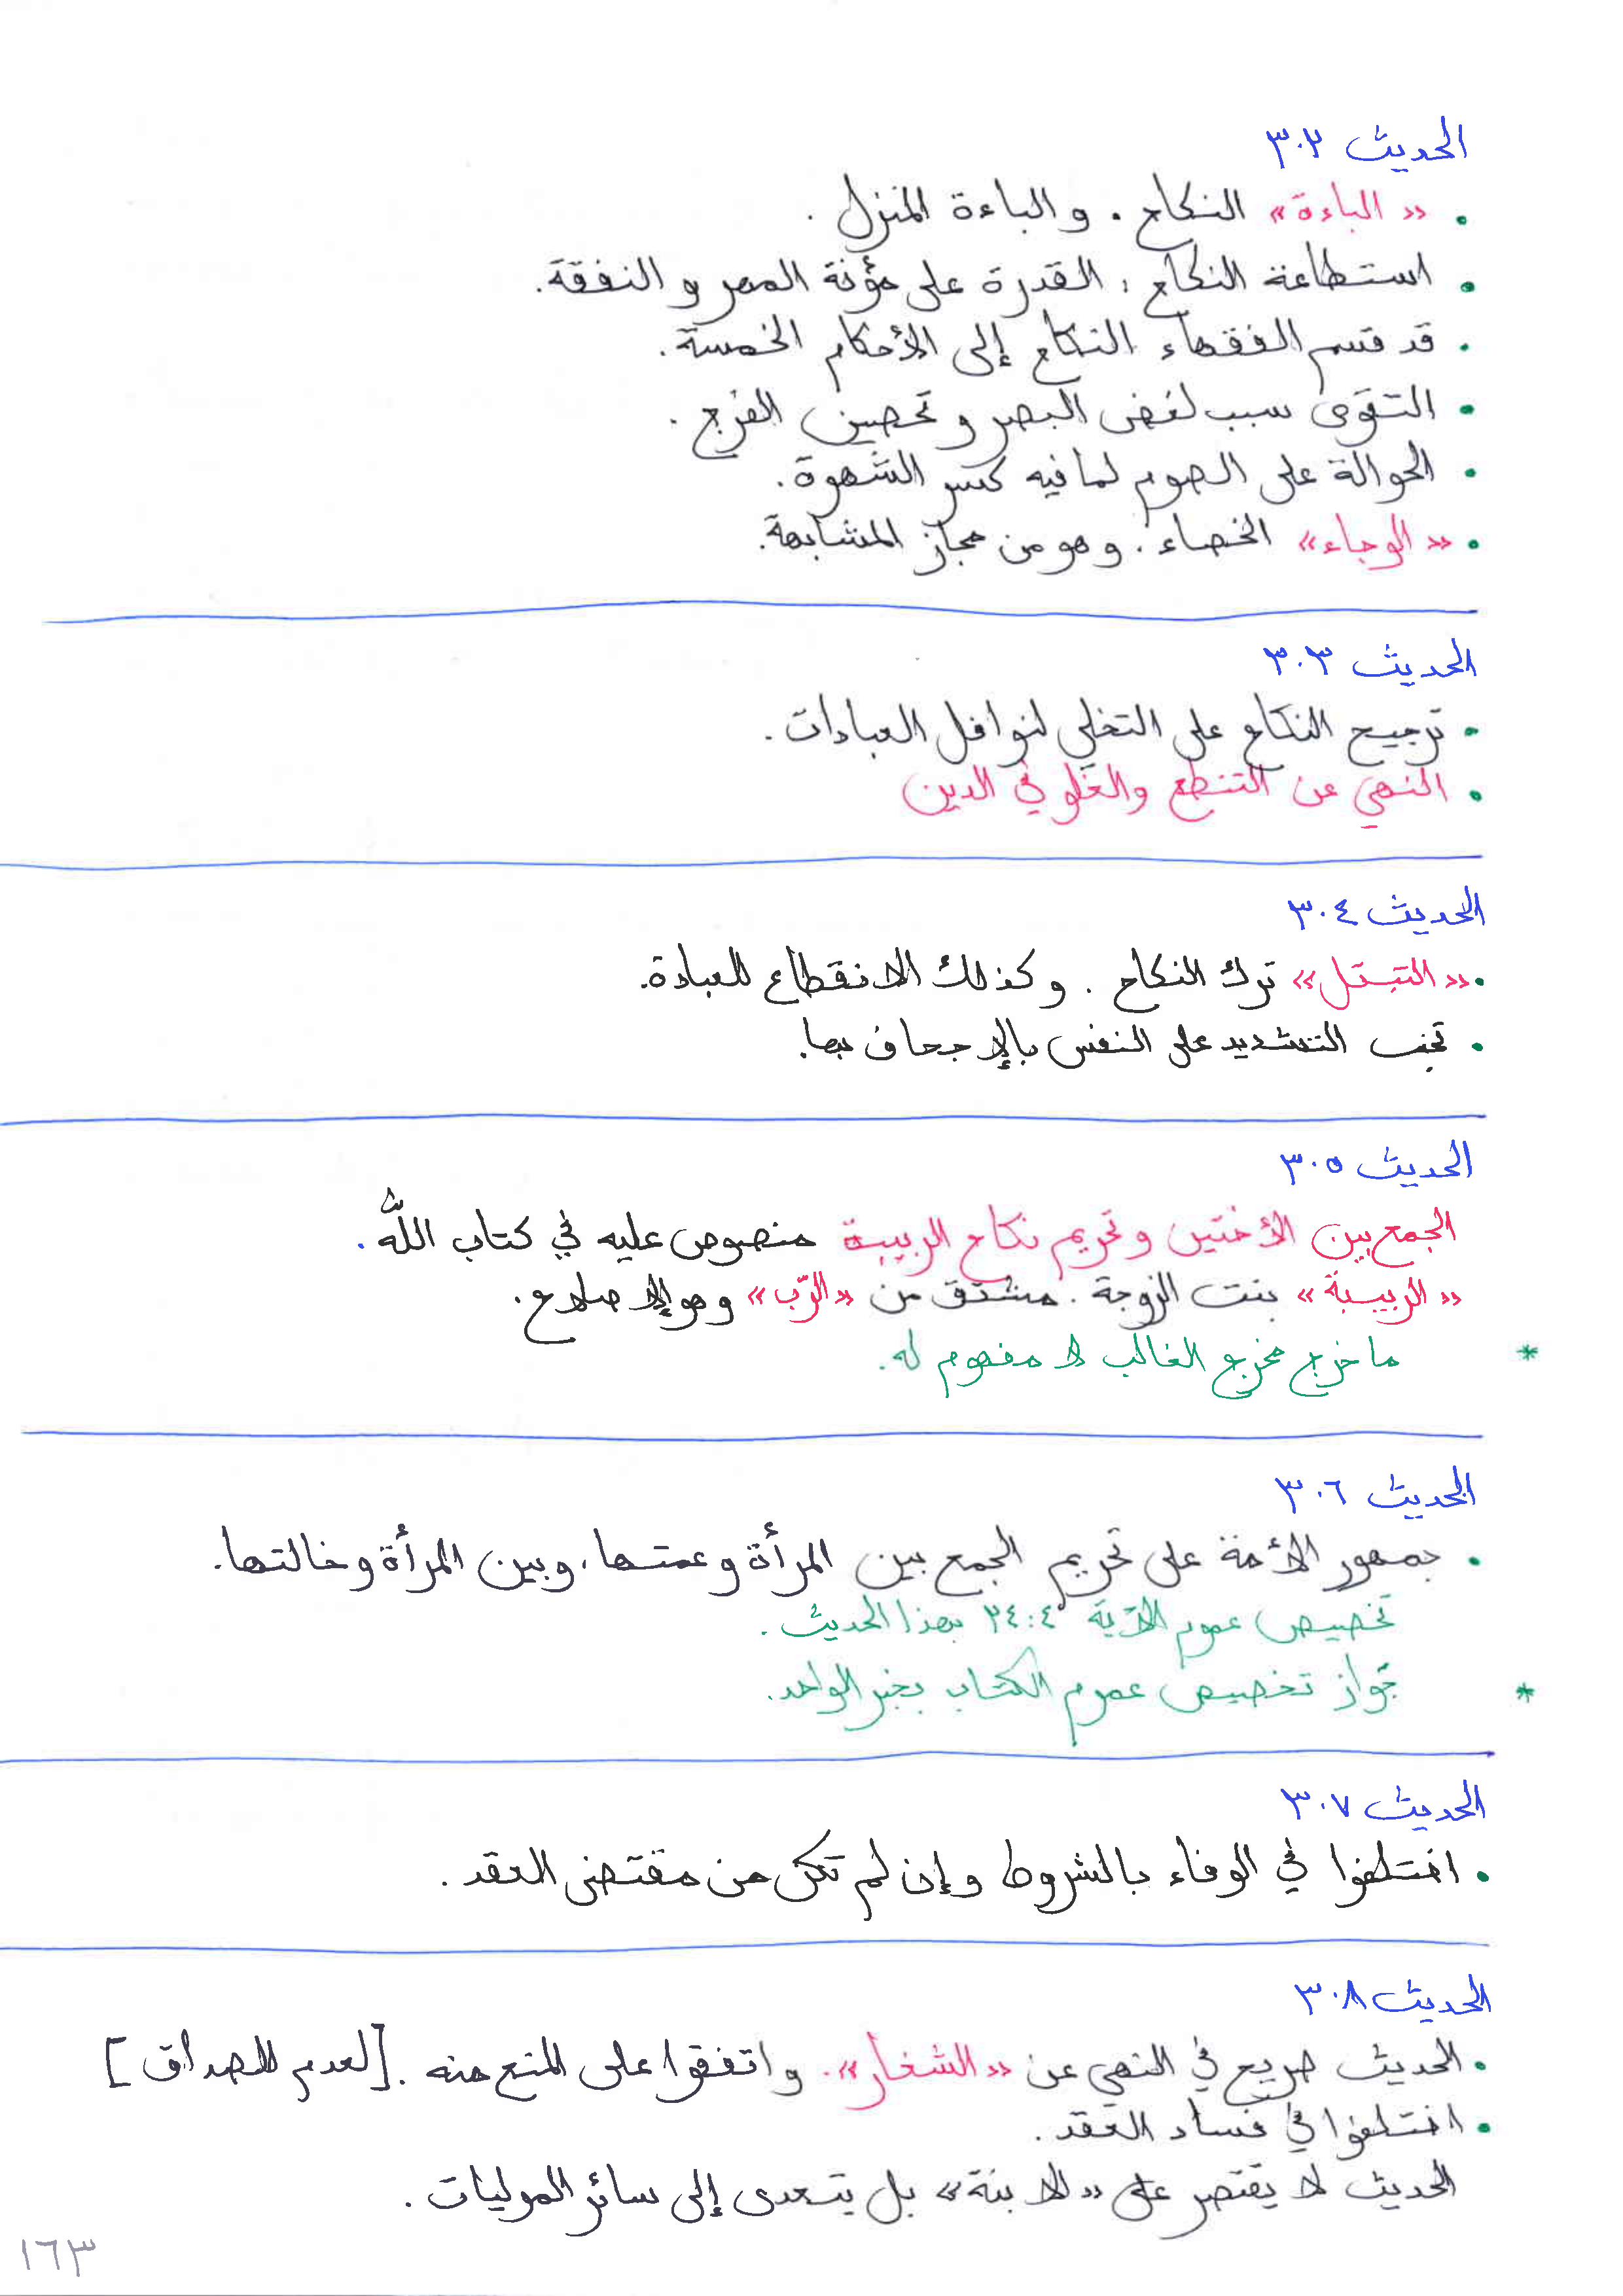 الحديث ٣٠٢
• «الباءة» النكاح. والباءة المنزل.
• استطاعة النكاح: القدرة على مؤنة المهر والنفقة.
• قد قسم الفقهاء النكاح إلى الأحكام الخمسة.
• التقوى سبب لغض البصر وتحصين الفرج.
• الحوالة على الصوم لما فيه كسر الشهوة.
• «الوجاء» الخصاء. وهو من مجاز المشابهة.
الحديث ٣٠٣
• ترجيح النكاح على التخلي لنوافل العبادات.
• النهي عن التنطع والغلو في الدين
الحديث ٣٠٤
• «التبتل» ترك النكاح. وكذلك الانقطاع للعبادة.
• تجنب التشديد على النفس بالإجحاف بها.
الحديث ٣٠٥
الجمع بين الأختين وتحريم نكاح الربيبة منصوص عليه في كتاب الله.
«الربيبة» بنت الزوجة. مشتق من «الرّب» وهو الإصلاح.
* ما خرج مخرج الغالب لا مفهوم له.
الحديث ٣٠٦
• جمهور الأمة على تحريم الجمع بين المرأة وعمتها، وبين المرأة وخالتها.
تخصيص عموم الآية ٢٤:٤ بهذا الحديث.
* جواز تخصيص عموم الكتاب بخبر الواحد.
الحديث ٣٠٧
• اختلفوا في الوفاء بالشروط وإن لم تكن من مقتضى العقد.
الحديث ٣٠٨
• الحديث صريح في النهي عن «الشغار». واتفقوا على المنع منه. [لعدم الصداق]
• اختلفوا في فساد العقد.
الحديث لا يقتصر على «الابنة» بل يتعدى إلى سائر الموليات.
١٦٣